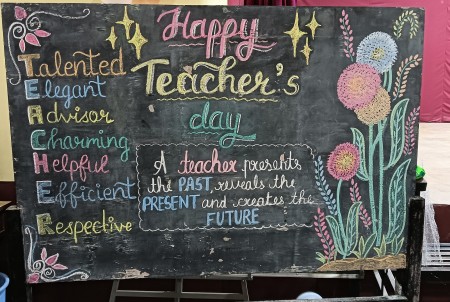 Happy
Teacher's
day
Talented
Elegant
Advisor
Charming
Helpful
Efficient
Respective
A teacher presents
the PAST reveals the
PRESENT and creates the
FUTURE